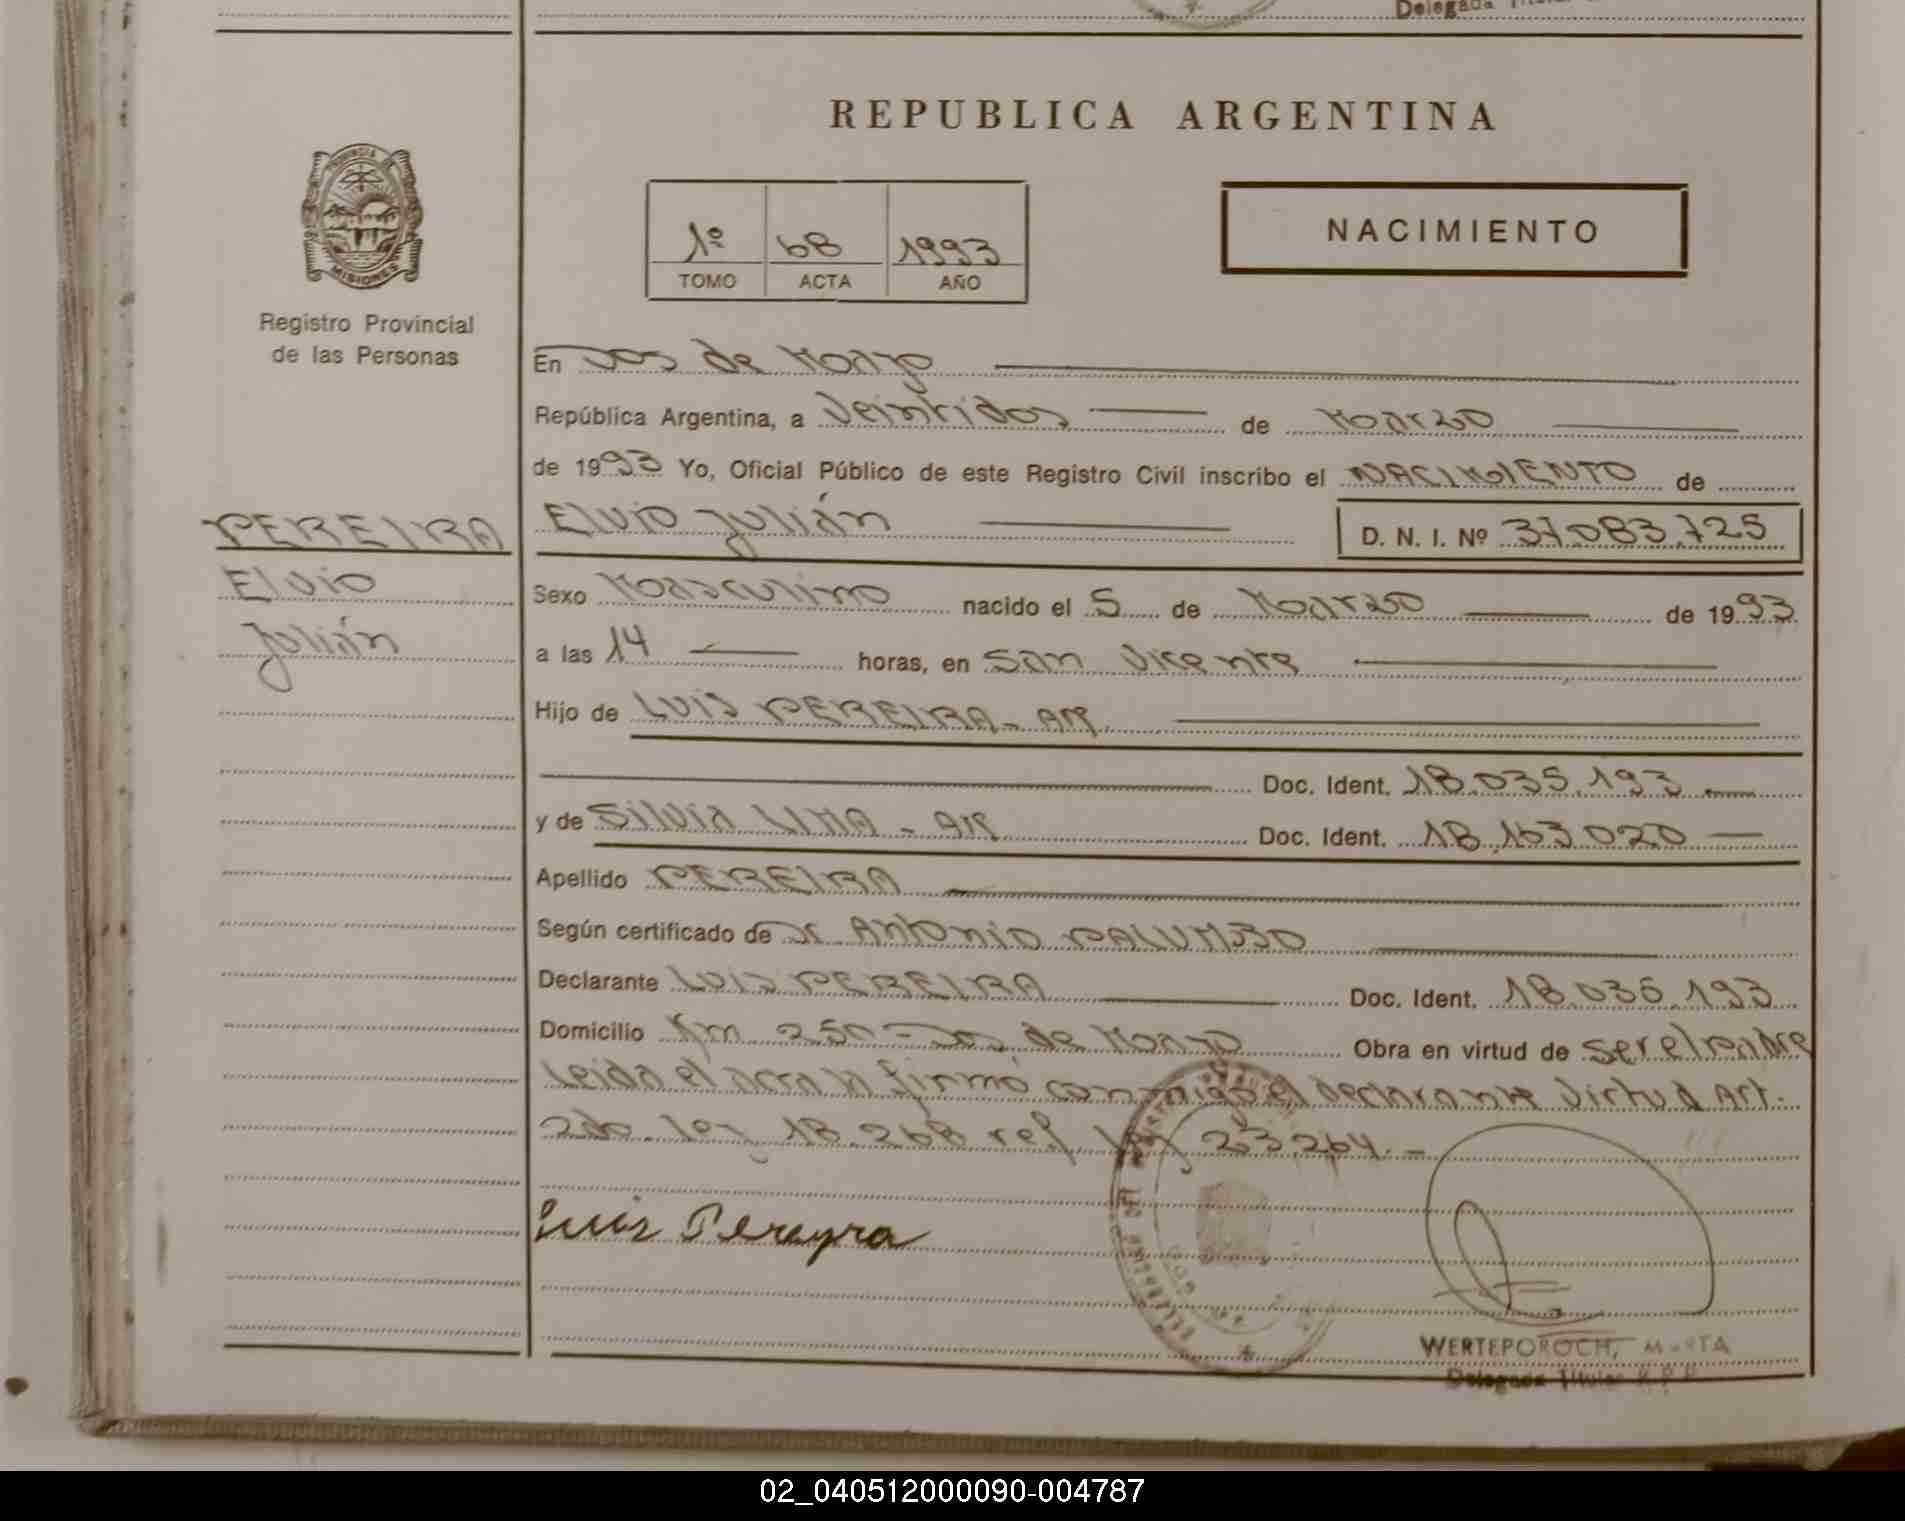 Delegada Titular
REPUBLICA ARGENTINA
PROVINCIA
MISIONES
Registro Provincial
de las Personas
1º 68 1993
TOMO ACTA AÑO
NACIMIENTO
En Dos de Mayo
República Argentina, a Veintidos de Marzo
de 1993 Yo, Oficial Público de este Registro Civil inscribo el NACIMIENTO de
PEREIRA
Elvio
Julián
Elvio Julián D. N. I. Nº 37.083.725
Sexo Masculino nacido el 5 de Marzo de 1993
a las 14 horas, en San Vicente
Hijo de Luis PEREIRA - AR.
Doc. Ident. 18.035.193
y de Silvia LIMA - AR Doc. Ident. 18.163.020
Apellido PEREIRA
Según certificado de Dr Antonio PALUMBO
Declarante Luis PEREIRA Doc. Ident. 18.035.193
Domicilio Km 250 - Dos de Mayo Obra en virtud de ser el padre
Leida el acta la firmó conmigo el declarante Virtud Art.
2do. ley 18.268 ref. ley 23.264. -
Luis Pereyra
WERTEPOROCH, MARTA
Delegada Titular R.P.P.
02_040512000090-004787